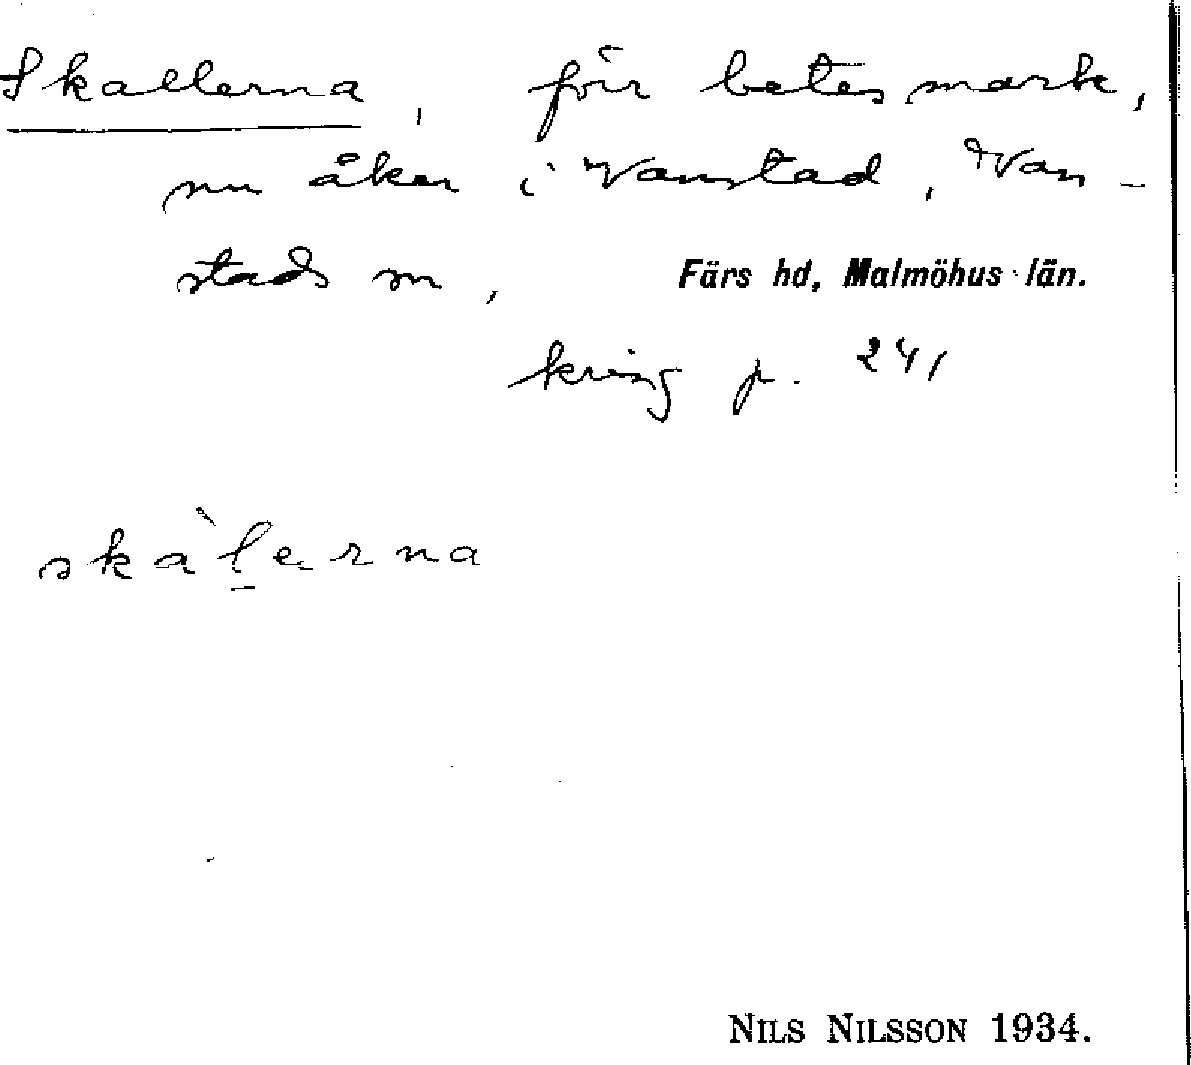 Skallerna, för betesmark,
nu åker i Vanstad, Van-
stads sn, Färs hd, Malmöhus län.
kring p. 241
skàḷerna
NILS NILSSON 1934.